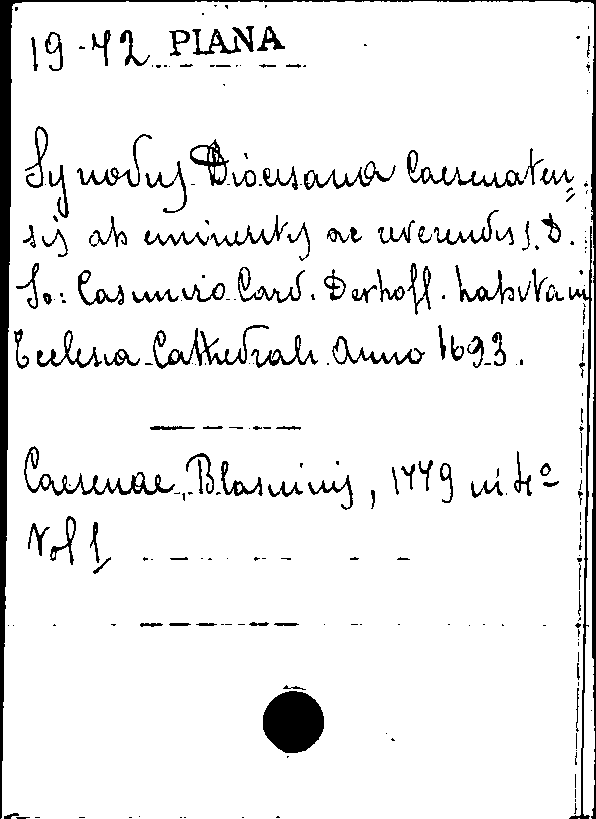 19-72 PIANA
Synodus Diocesana Caesenaten=
sis ab eminentis ac reverendis s. D.
Jo: Casimiro Card. Denhoff. habita in
Ecclesia Cathedrali Anno 1693.
Caesenae, Blasinius, 1779 in 4º
Vol 1